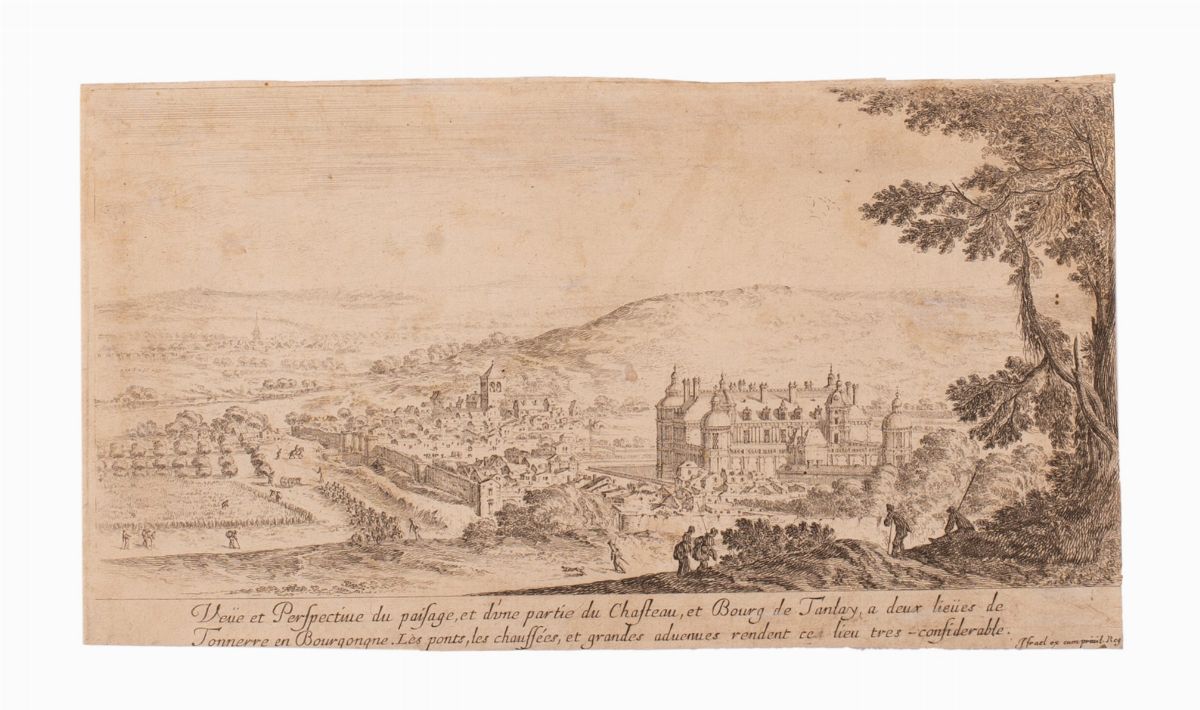 Veüe et Perſpectiue du paiſage, et d'vne partie du Chaſteau, et Bourg de Tanlay, a deux lieües de
Tonnerre en Bourgongne. Les ponts, les chauſſées, et grandes aduenues rendent ce lieu tres-conſiderable.
Iſrael ex cum priuil. Reg